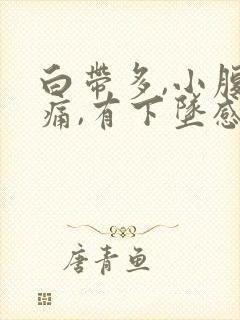 白帶多,小腹
痛,有下墜感
唐青鱼